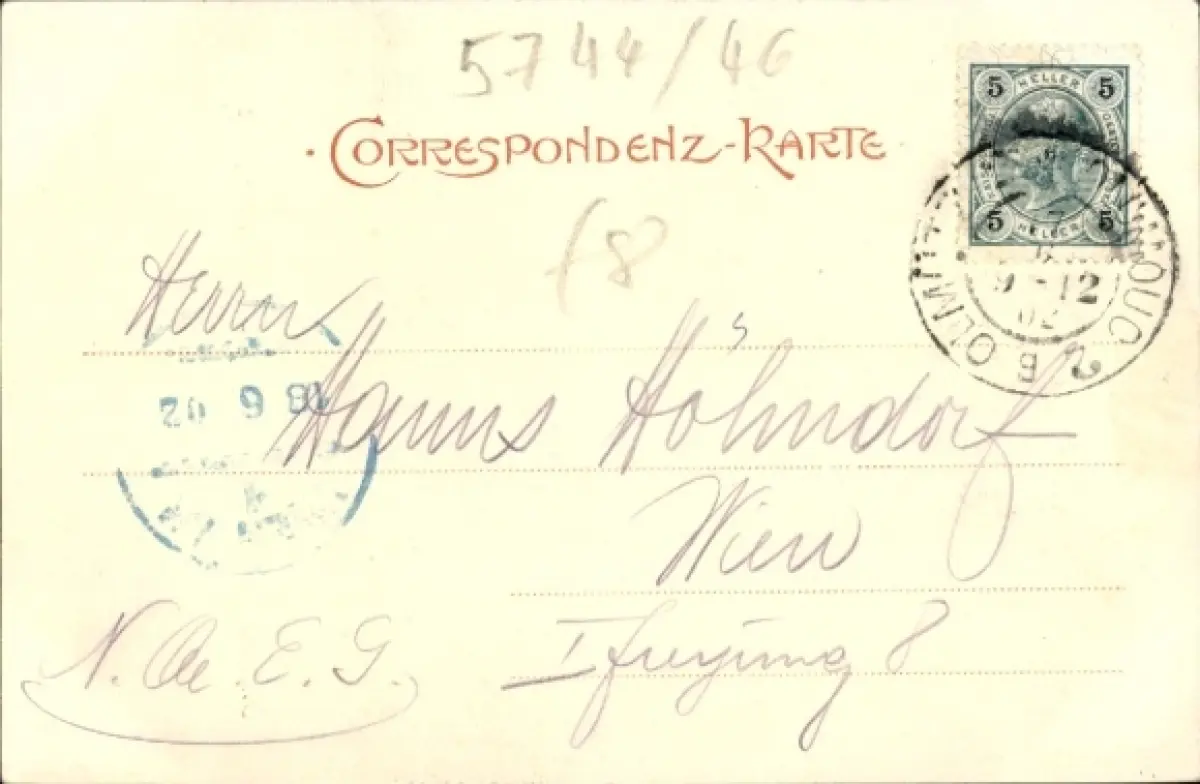 5744/46
CORRESPONDENZ-KARTE
5 HELLER 5
5 HELLER 5
9-12
02
2 B OLMÜTZ
18
Herrn
18 6 02
Hanns Höhndorf
Wien
I Freyung 8
N. Oe. E. G.